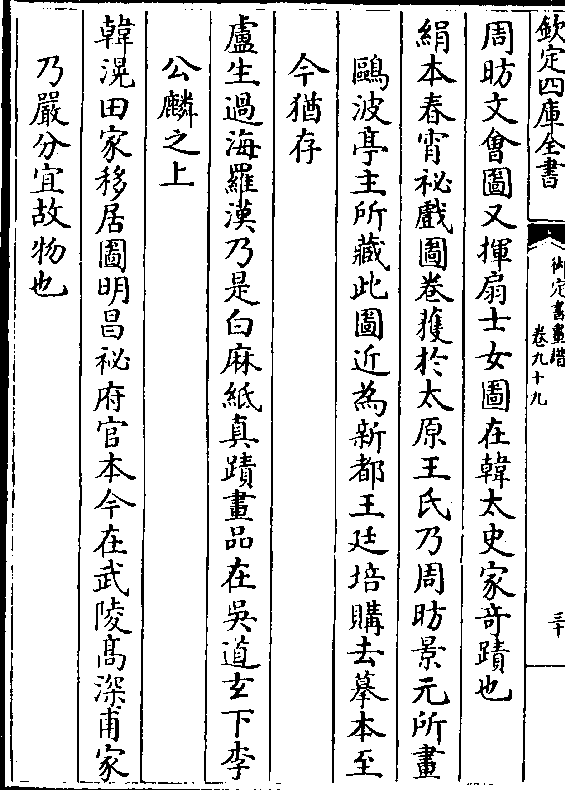 欽定四庫全書
御定書畫譜
卷九十九
三十
周昉文會圖又揮扇士女圖在韓太史家奇蹟也
絹本春宵祕戲圖卷獲於太原王氏乃周昉景元所畫
鷗波亭主所藏此圖近為新都王廷培購去摹本至
今猶存
盧生過海羅漢乃是白麻紙真蹟畫品在吳道玄下李
公麟之上
韓滉田家移居圖明昌祕府官本今在武陵髙深甫家
乃嚴分宜故物也